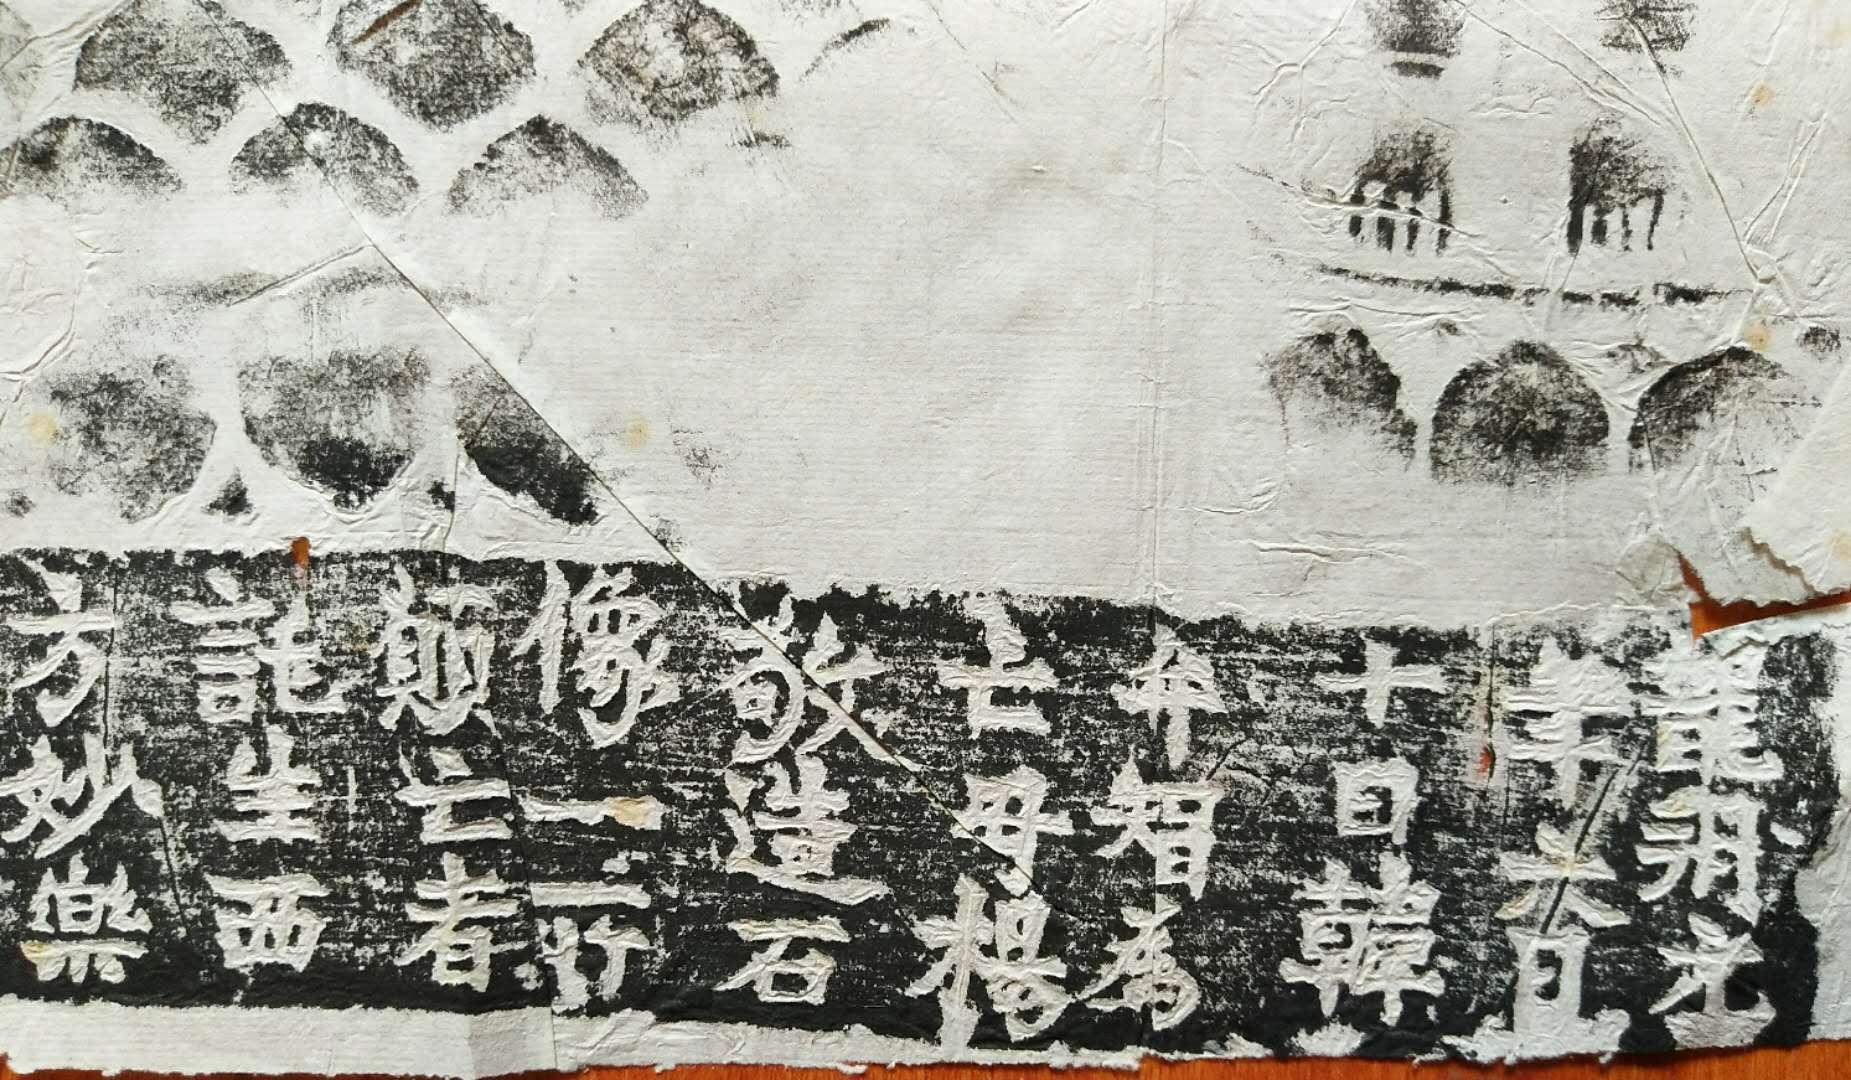 龍朔元
年六月
十日韓
弁智為
亡母楊
敬造石
像一所
願亡者
託生西
方妙樂